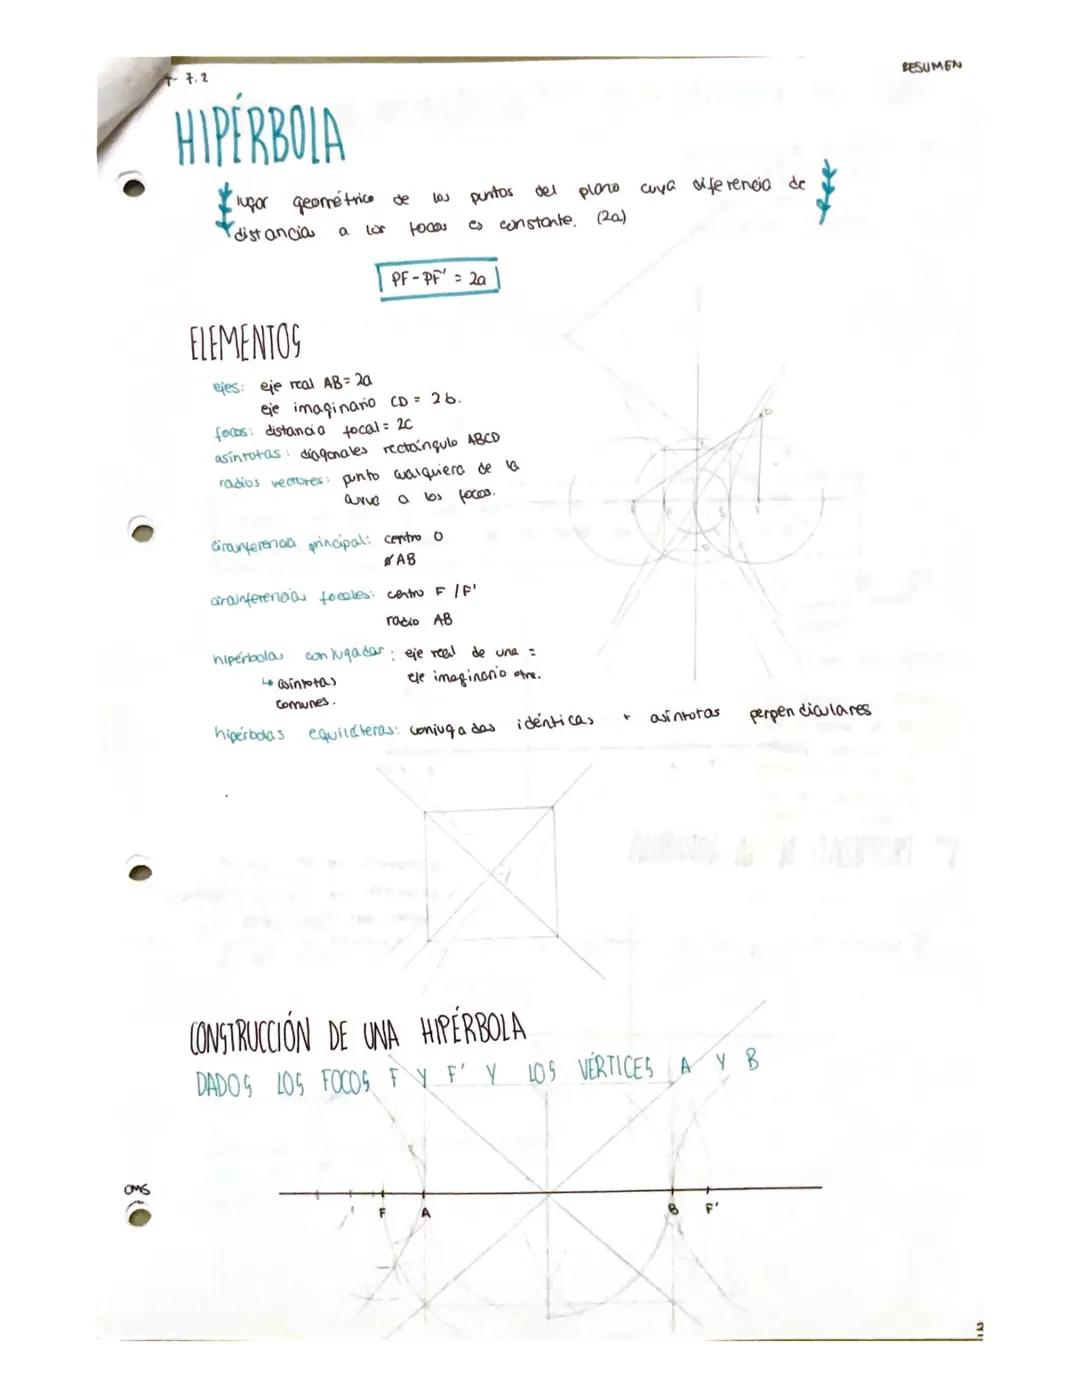 T- 7.2
RESUMEN
HIPÉRBOLA
lugar geométrico de los puntos del plano cuya diferencia de
distancias a los focos es constante. (2a)
PF - PF' = 2a
ELEMENTOS
ejes: eje real AB = 2a
eje imaginario CD = 2b.
focos: distancia focal = 2C
asíntotas: diagonales rectángulo ABCD
radios vectores: punto cualquiera de la
curva a los focos.
circunferencia principal: centro O
Ø AB
circunferencias focales: centro F / F'
radio AB
hipérbolas conjugadas: eje real de una =
↳ asíntotas eje imaginario otra.
comunes.
hipérbolas equiláteras: conjugadas idénticas + asíntotas perpendiculares
CONSTRUCCIÓN DE UNA HIPÉRBOLA
DADOS LOS FOCOS F Y F' Y LOS VÉRTICES A Y B
F A B F'
2